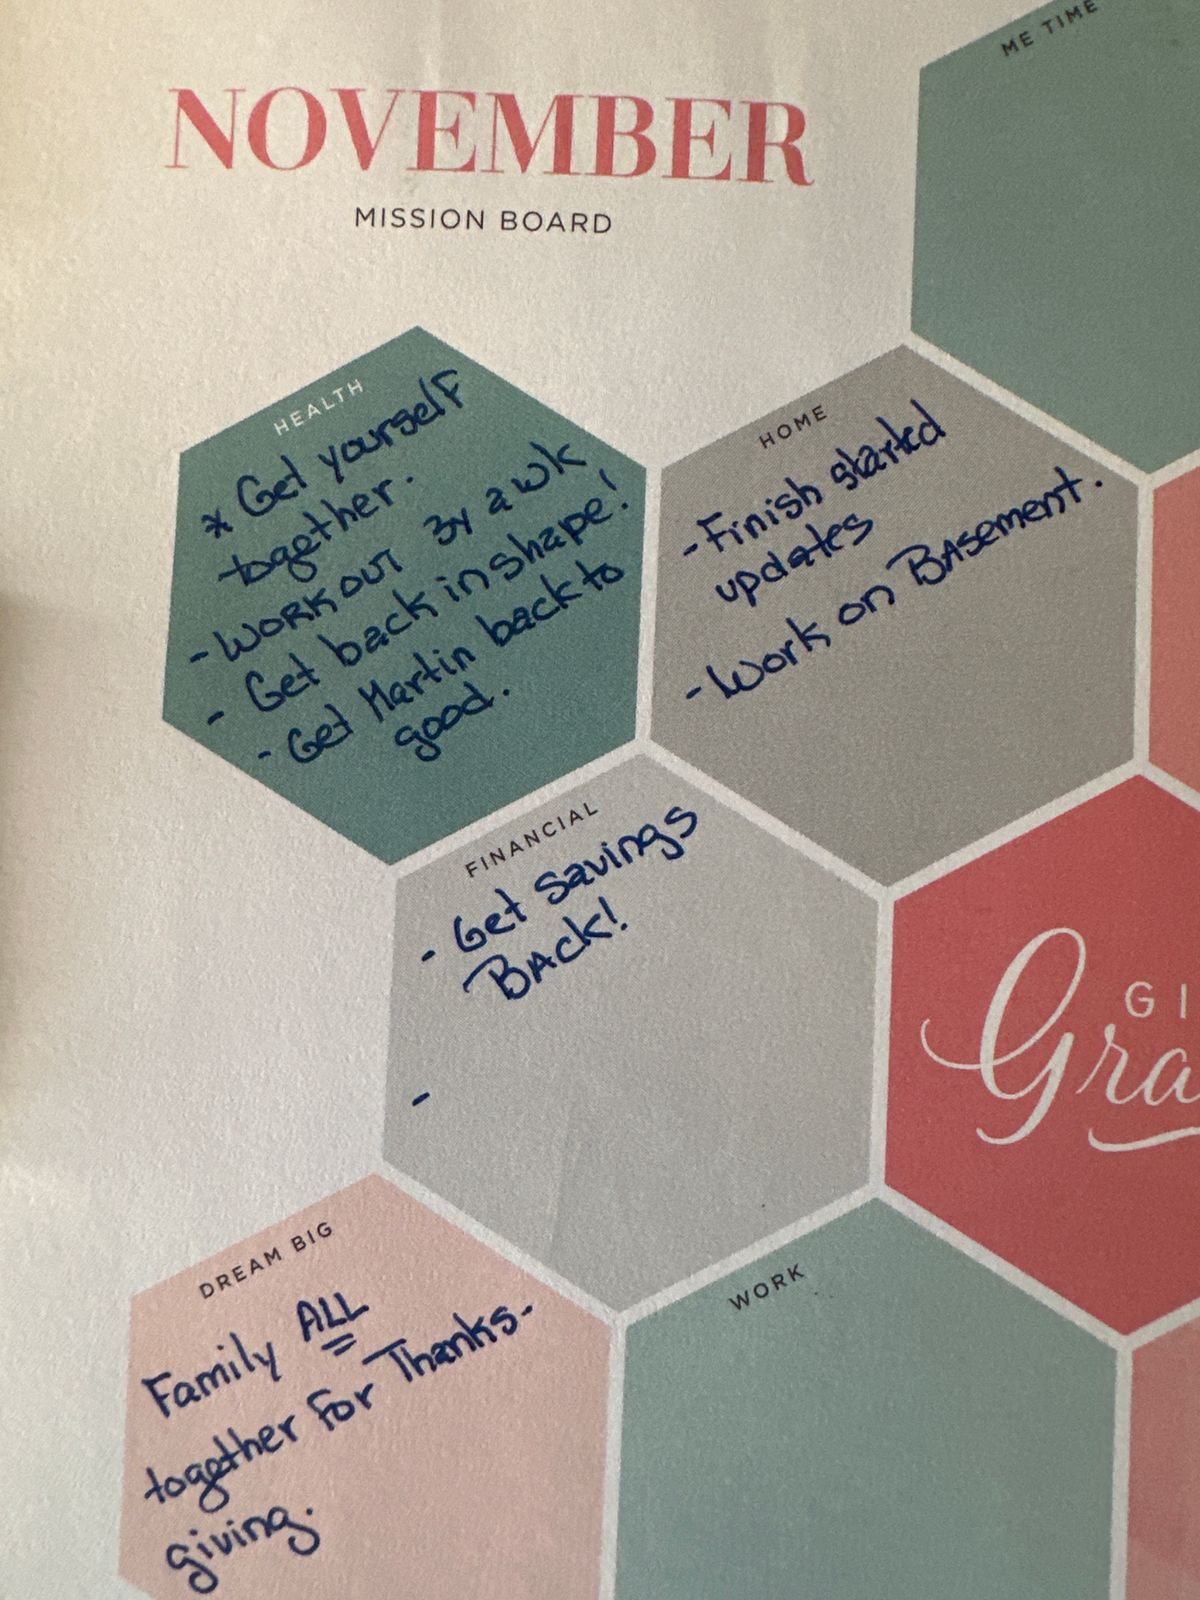 NOVEMBER
MISSION BOARD
ME TIME
HEALTH
* Get yourself
together.
- Workout 3x a wk
- Get back in shape!
- Get Martin back to
good.
HOME
- Finish started
updates
- Work on Basement.
FINANCIAL
- Get savings
Back!
-
GI
Gra
DREAM BIG
Family ALL
together For Thanks-
giving.
WORK